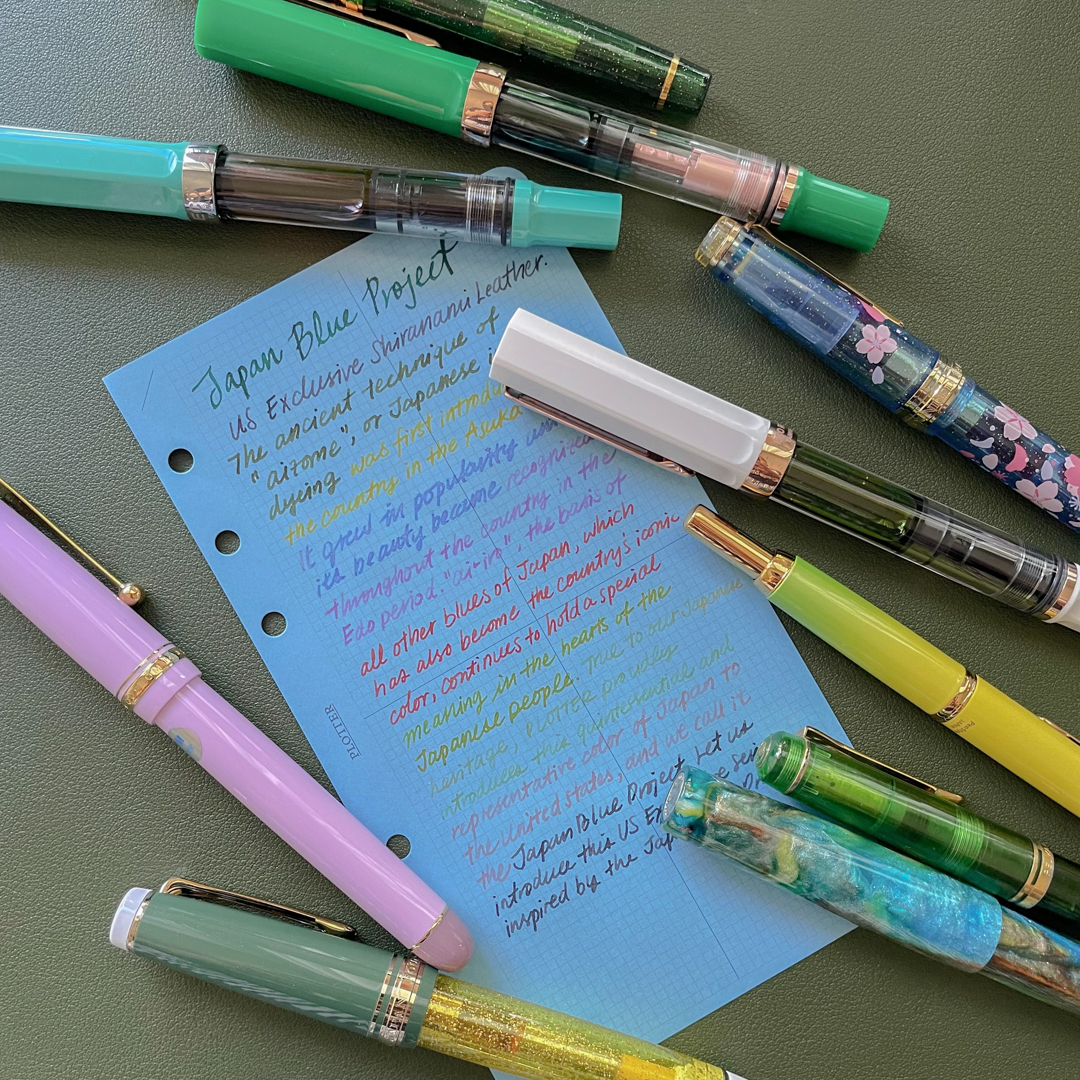 Japan Blue Project
US Exclusive Shiranami Leather.
The ancient technique of
"aizome", or Japanese
dyeing was first introdu
the country in the Asuka
it grew in popularity
its beauty, became recognized
throughout the country in the
Edo period. "ai-iro", the basis of
all other blues of Japan, which
has also become the country's iconic
color, continues to hold a special
meaning in the hearts of the
Japanese people. True to our Japanese
heritage, PLOTTER proudly
introduces this quintessential and
representative color of Japan to
the United States, and we call it
the Japan Blue Project. Let us
introduce this US Ex
inspired by the Jap
PLOTTER